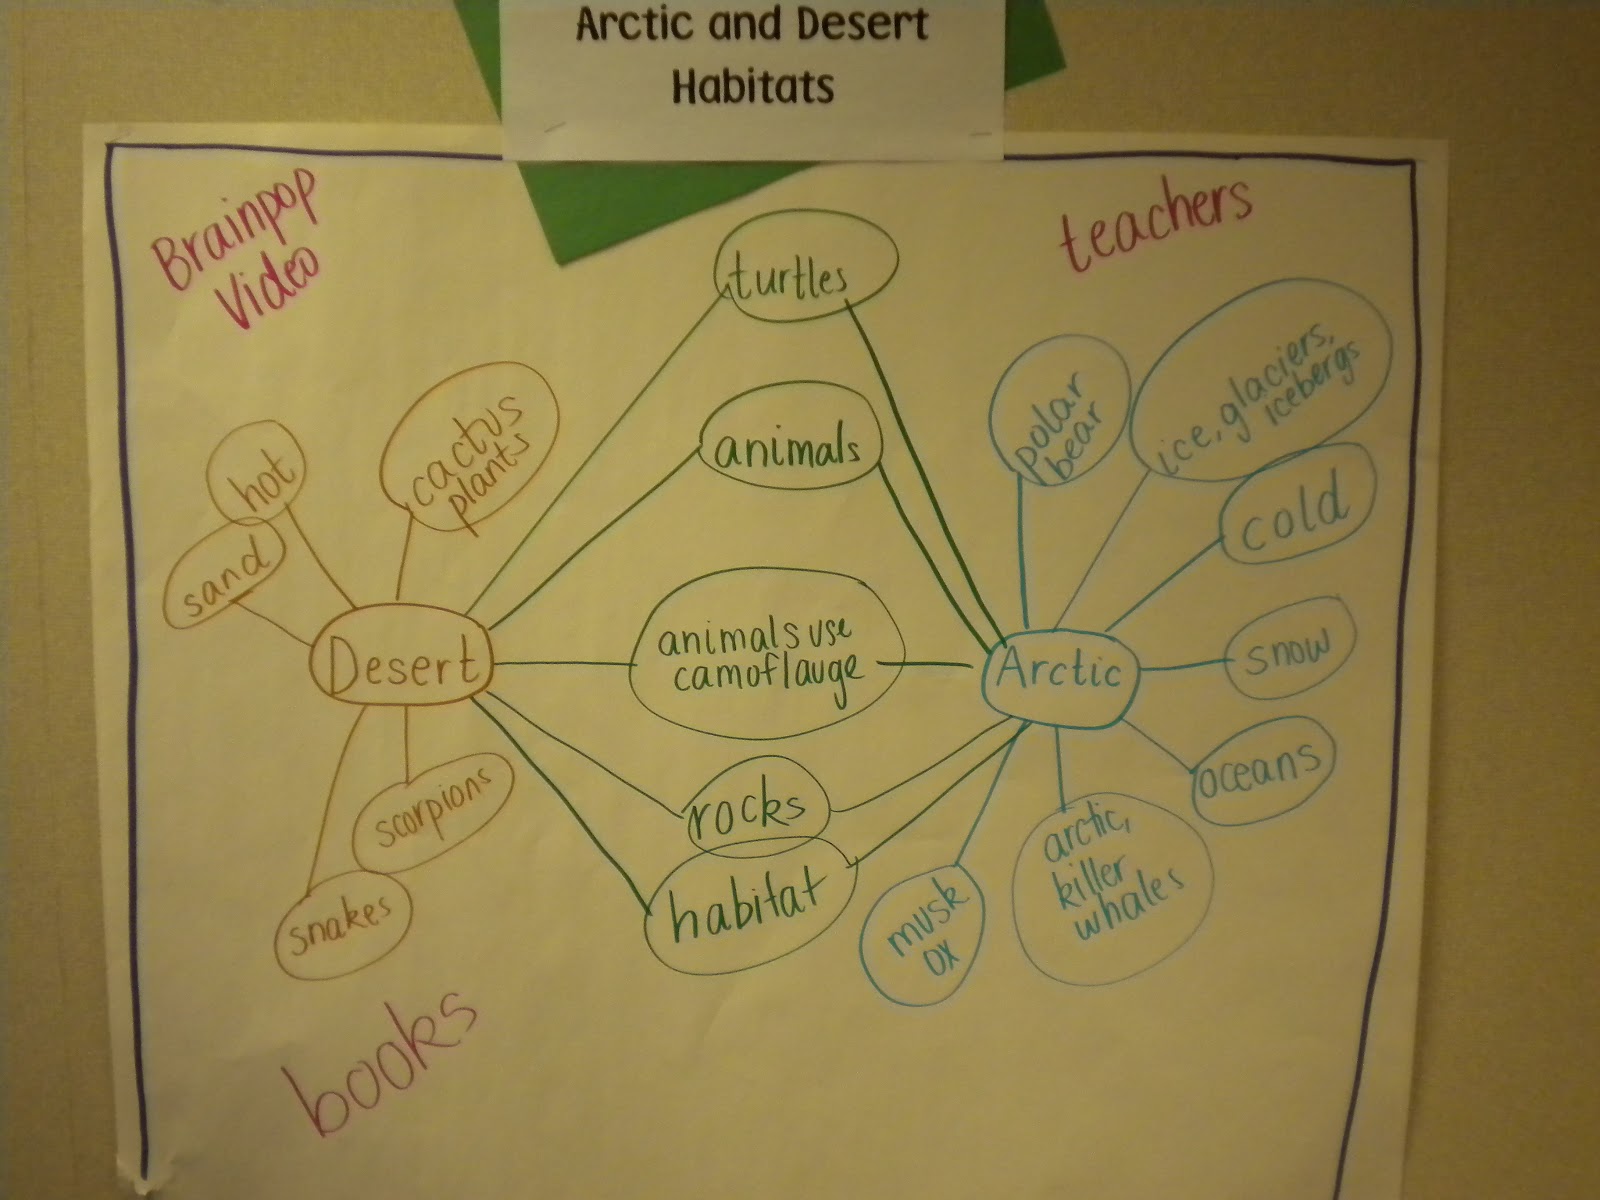 Arctic and Desert
Habitats
Brainpop
Video
teachers
turtles
animals
animals use
camoflauge
rocks
habitat
hot
sand
cactus
plants
Desert
scorpions
snakes
polar
bear
ice, glaciers,
icebergs
cold
Arctic
snow
oceans
arctic,
killer
whales
musk
ox
books